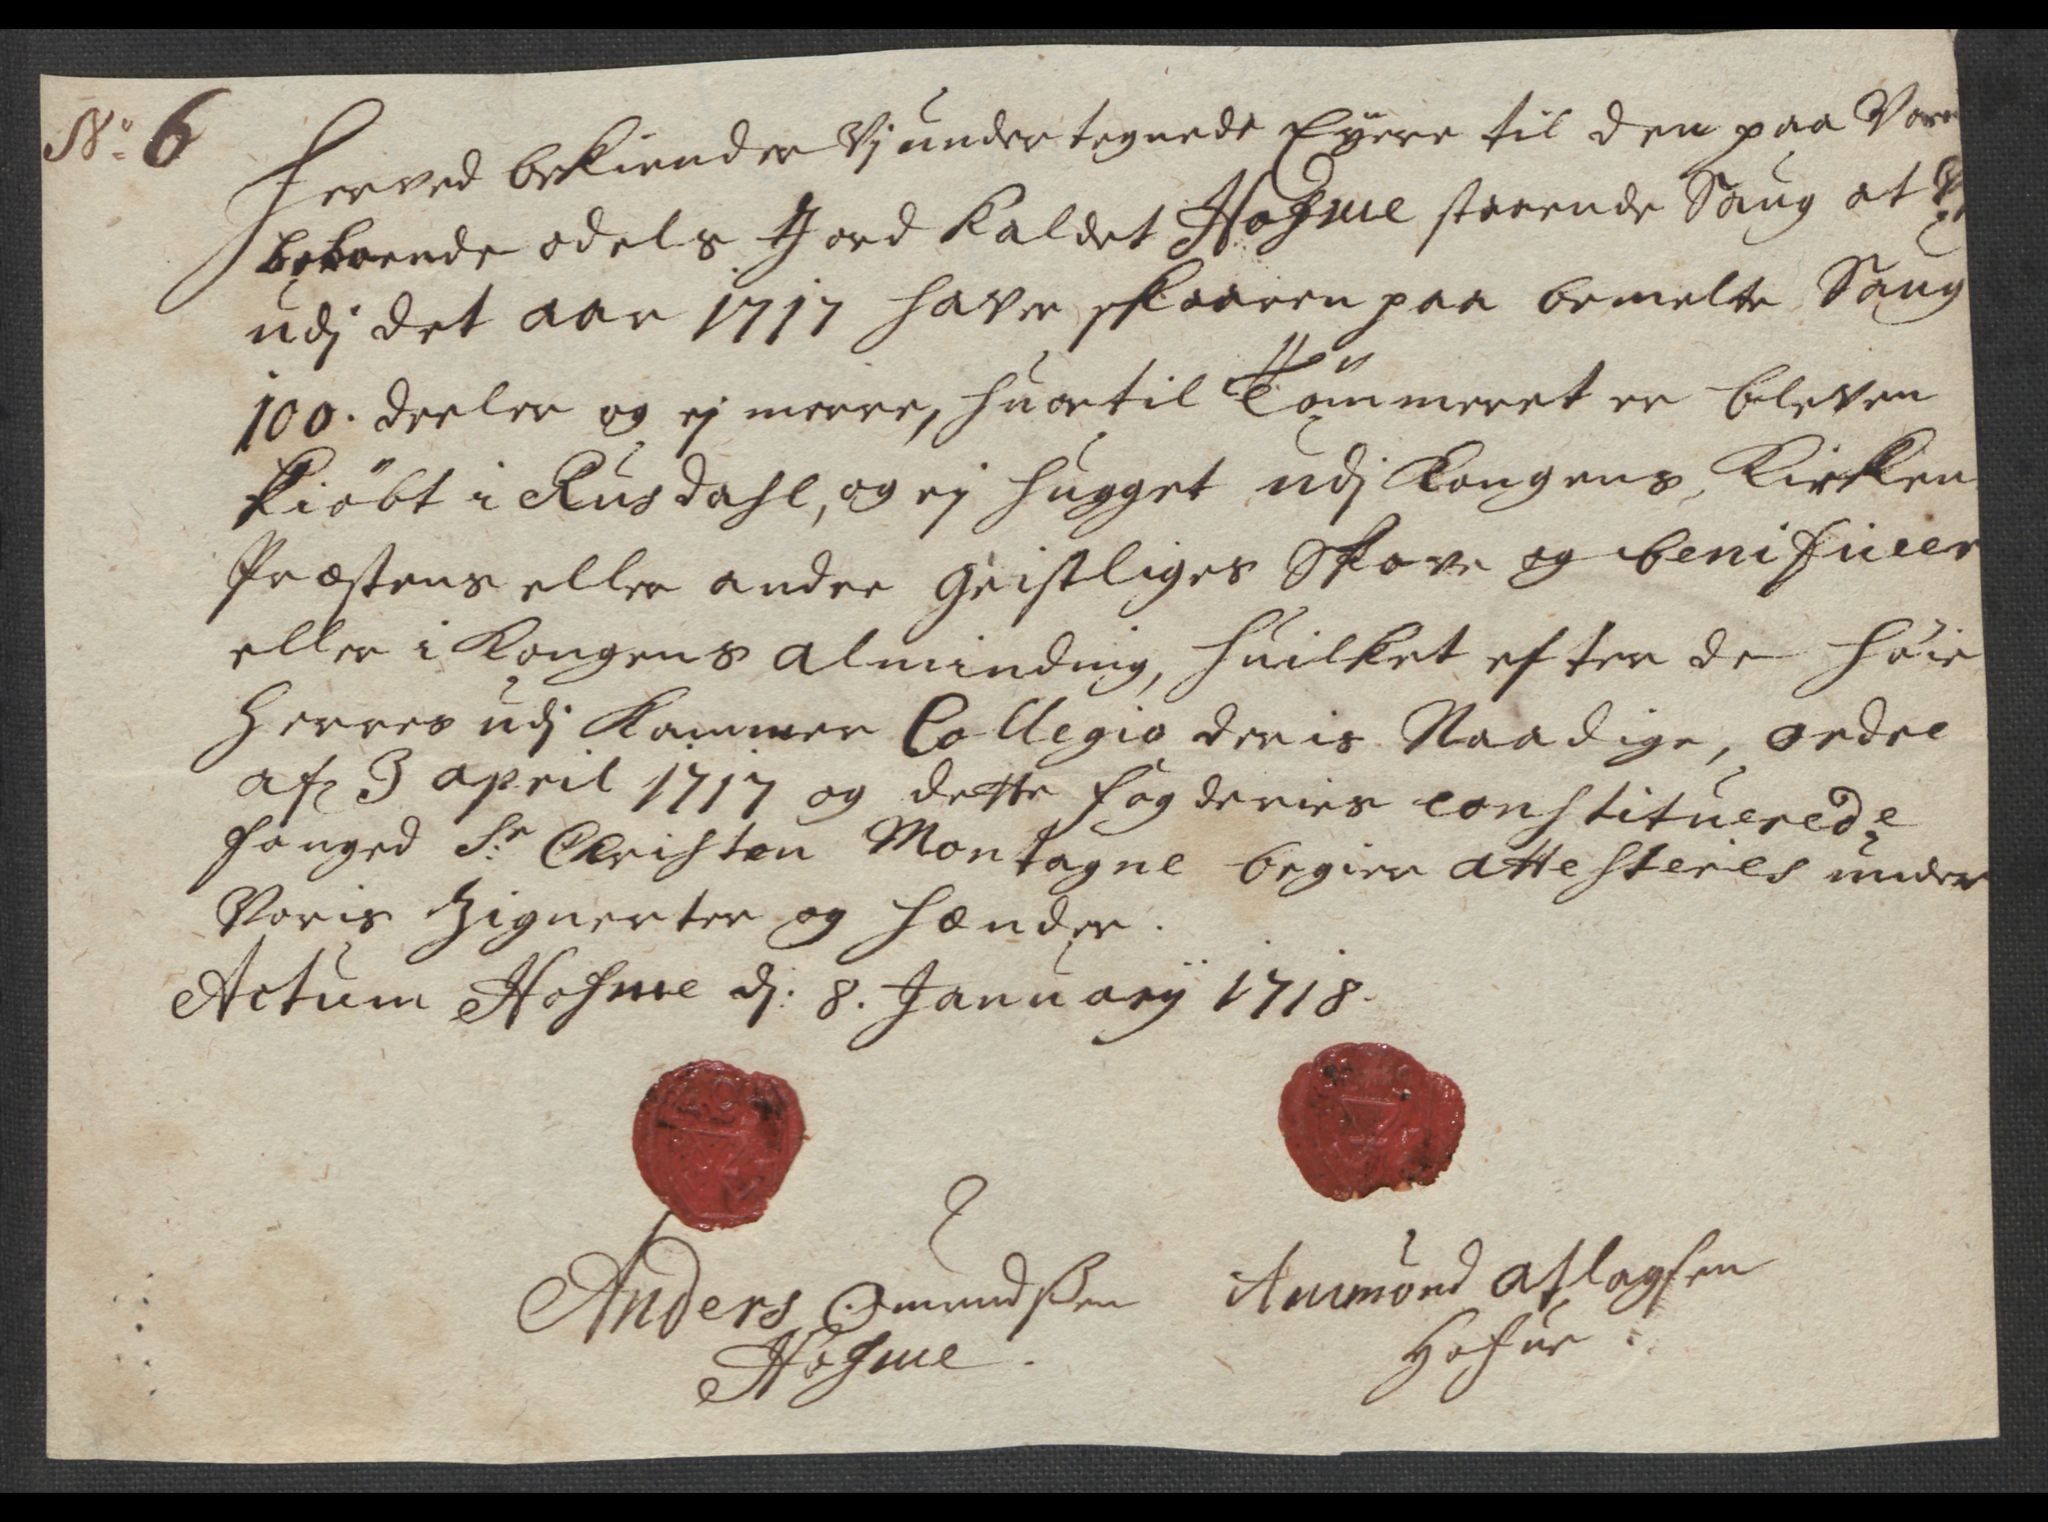 No. 6
Herved bekiender Vj undertegnede Eyere til den paa Vores
beboende odels Jord kaldet Hohme staaende Saug at Vi
udj det aar 1717 haver skaaren paa bemelte Saug
100. deeler og ej meere, huortil Tømmeret er bleven
kiöbt i Rusdahl, og ej hugget udj Kongens, Kirken
Præstens eller andre geistliges Skove og benificier
eller i Kongens alminding, huilket efter de høie
Herres udj Kammer Collegio deris Naadige, ordre
af 3 april 1717 og dette fogderies constituerede
fouged Sr. Christen Montagne begier attesteres under
Voris Zignerter og hænder.
Actum Hohme dj: 8. Januarij 1718.
Anders Omundsen Ammond Aslagsen
Hohme.